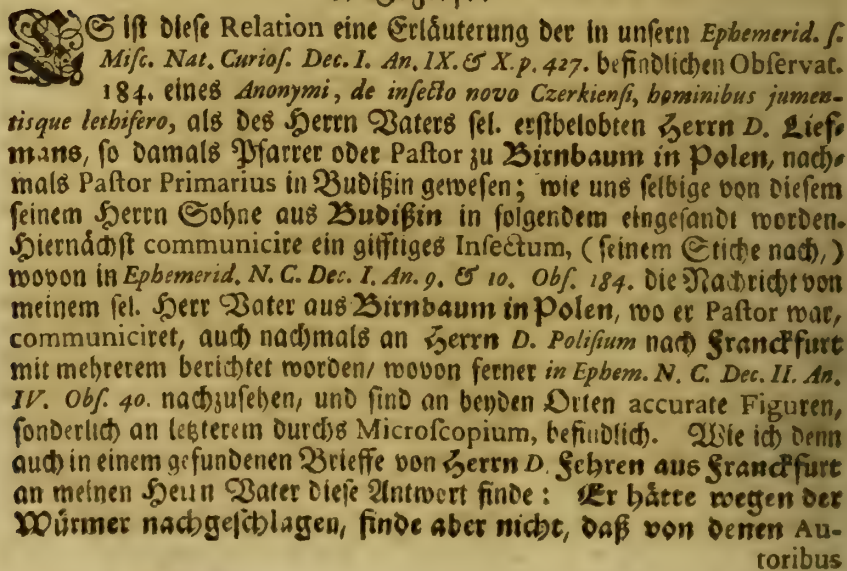 ES ist diese Relation eine Erläuterung der in unsern Ephemerid. s.
Misc. Nat. Curios. Dec. I. An. IX. & X. p. 427. befindlichen Observat.
184. eines Anonymi, de insecto novo Czerkiensi, hominibus jumen-
tisque lethifero, als des Herrn Vaters sel. erstbelobten Herrn D. Lief-
mans, so damals Pfarrer oder Pastor zu Birnbaum in Polen, nach-
mals Pastor Primarius in Budißin gewesen; wie uns selbige von diesem
seinem Herrn Sohne aus Budißin in folgendem eingesandt worden.
Hiernächst communicire ein gifftiges Insectum, (seinem Stiche nach,)
wovon in Ephemerid. N. C. Dec. I. An. 9. & 10. Obs. 184. die Nachricht von
meinem sel. Herr Vater aus Birnbaum in Polen, wo er Pastor war,
communiciret, auch nachmals an Herrn D. Polisium nach Franckfurt
mit mehrerem berichtet worden/ wovon ferner in Ephem. N. C. Dec. II. An.
IV. Obs. 40. nachzusehen, und sind an beyden Orten accurate Figuren,
sonderlich an letzterem durchs Microscopium, befindlich. Wie ich denn
auch in einem gefundenen Brieffe von Herrn D. Sehren aus Franckfurt
an meinen Herrn Vater diese Antwort finde: Er hätte wegen der
Würmer nachgeschlagen, finde aber nicht, daß von denen Au-
toribus